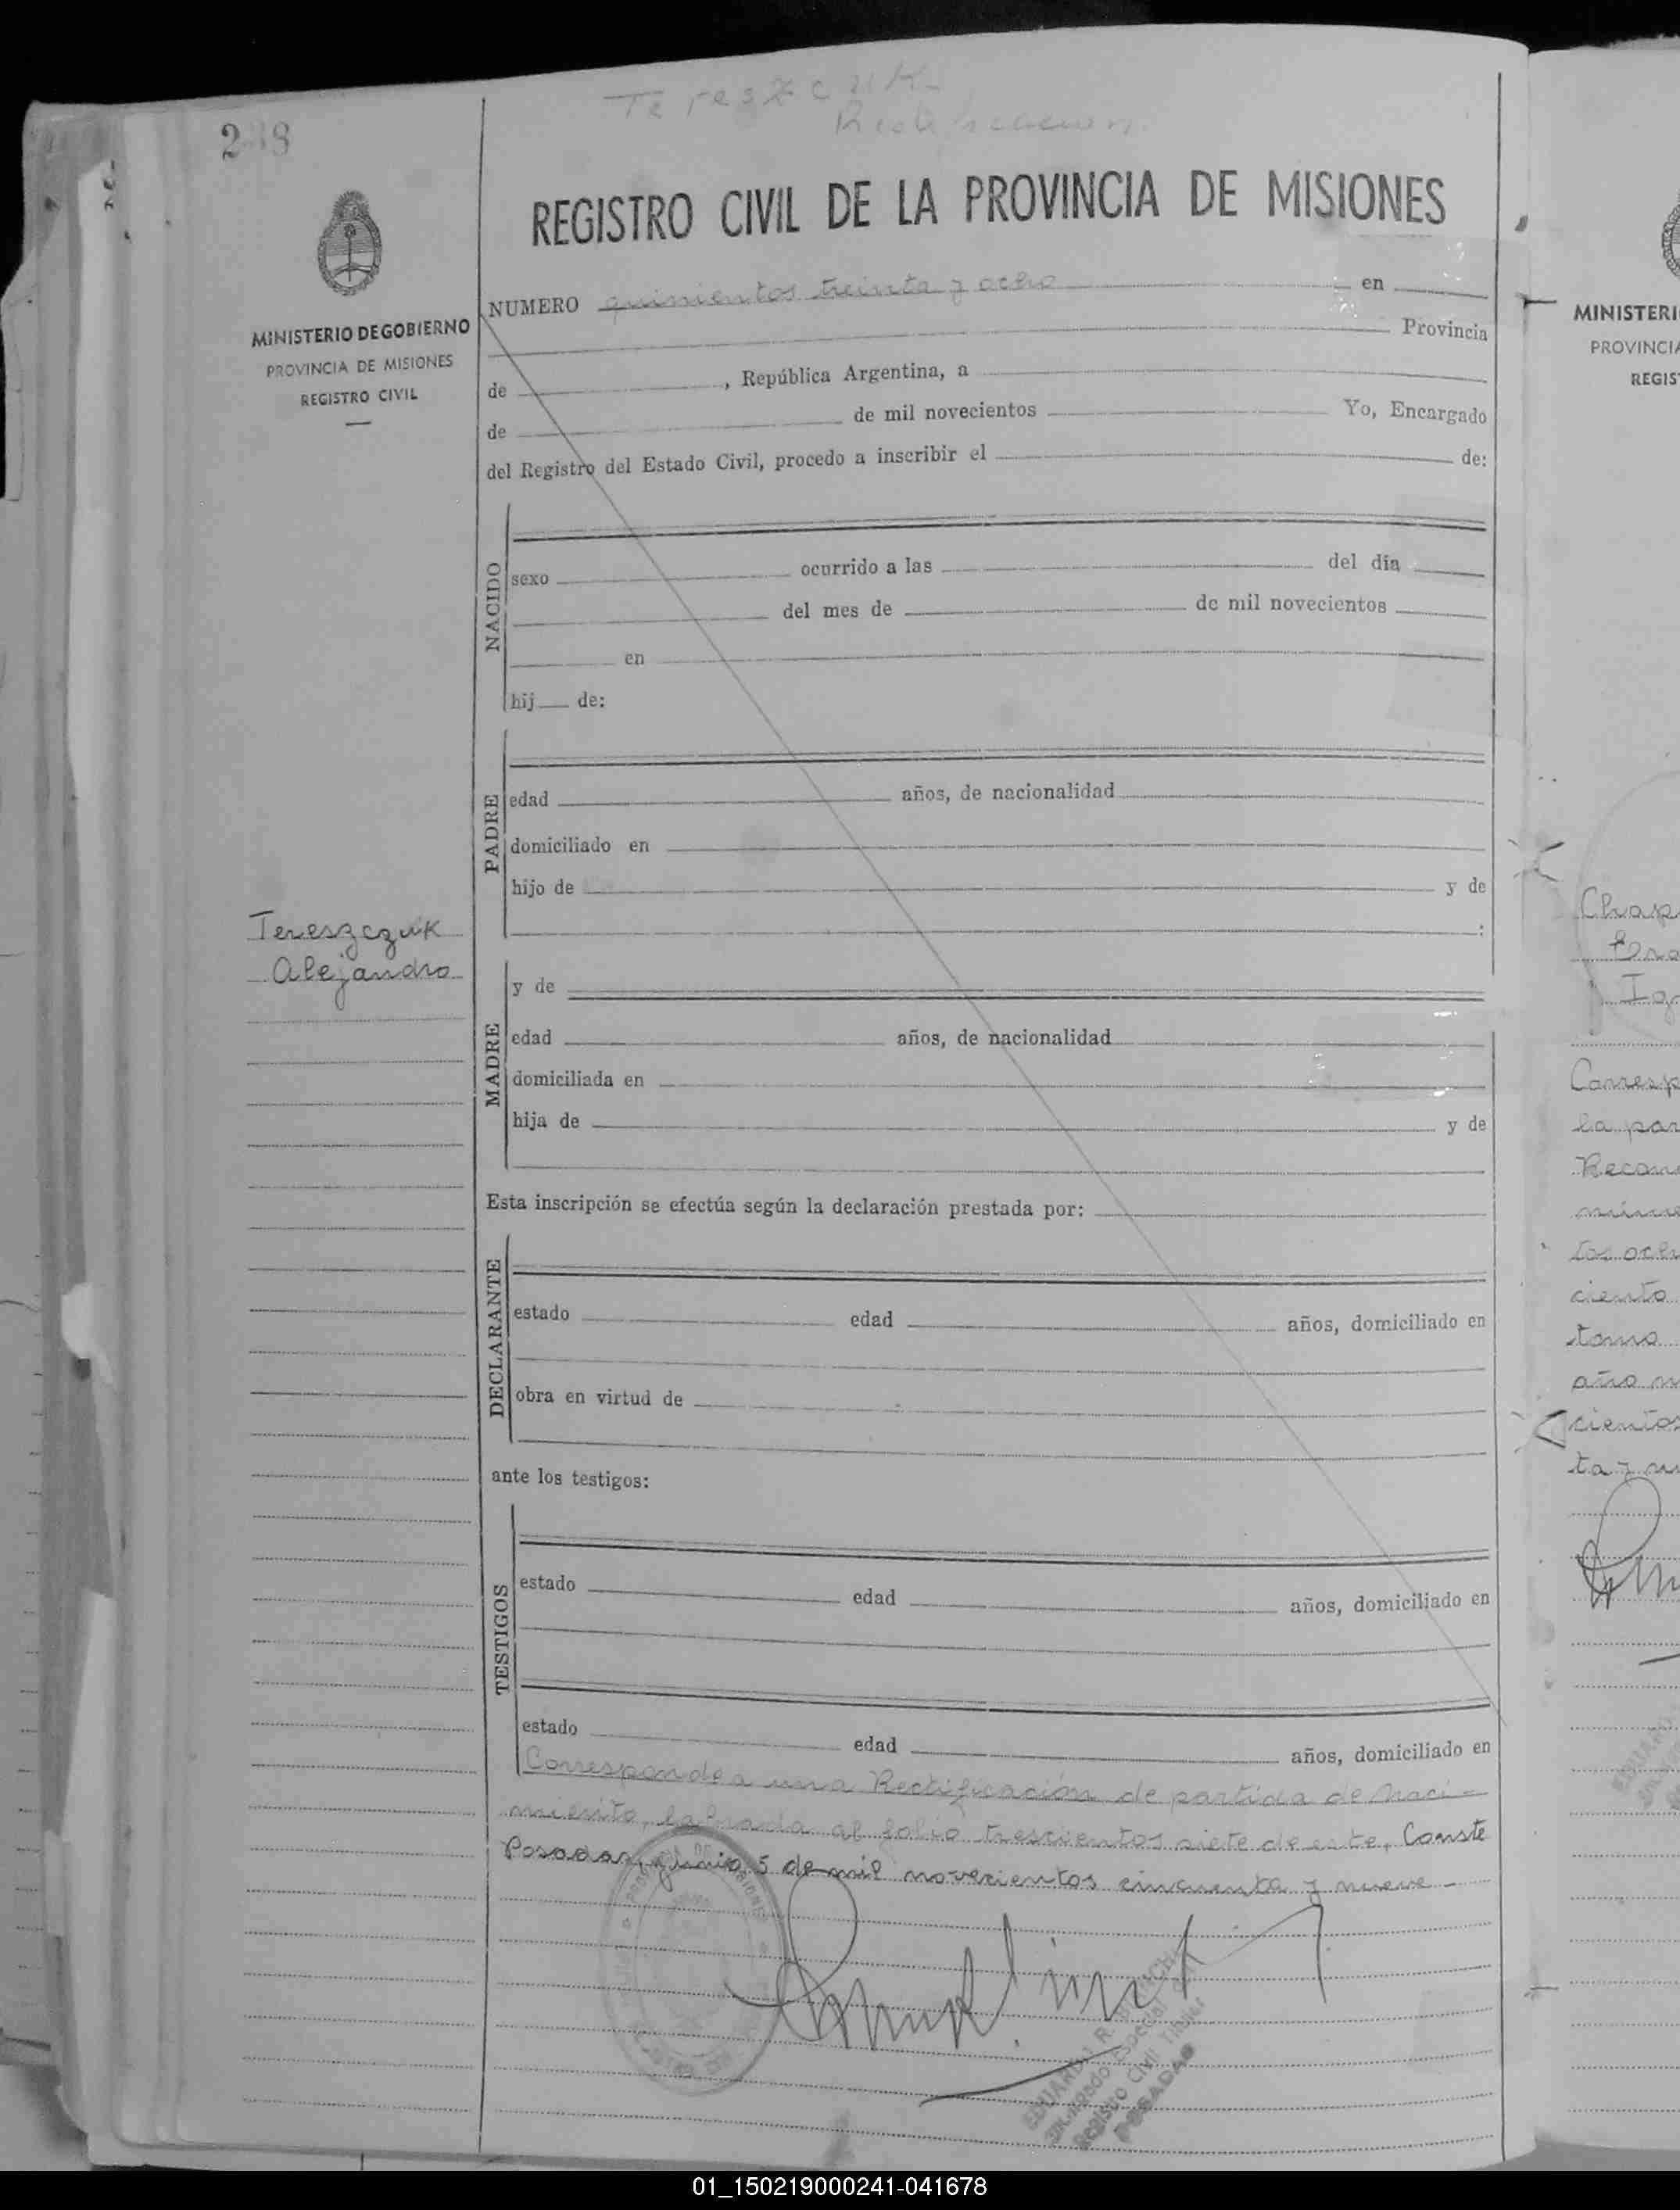 Tereszcuk
238
REGISTRO CIVIL DE LA PROVINCIA DE MISIONES
MINISTERIO DE GOBIERNO
PROVINCIA DE MISIONES
REGISTRO CIVIL
NUMERO quinientos treinta y ocho en
Provincia
de , República Argentina, a
de de mil novecientos Yo, Encargado
del Registro del Estado Civil, procedo a inscribir el de:
NACIDO
sexo ocurrido a las del día
del mes de de mil novecientos
en
hij de:
PADRE
edad años, de nacionalidad
domiciliado en
hijo de y de
:
Tereszczuk
Alejandro
MADRE
y de
edad años, de nacionalidad
domiciliada en
hija de y de
Esta inscripción se efectúa según la declaración prestada por:
DECLARANTE
estado edad años, domiciliado en
obra en virtud de
ante los testigos:
TESTIGOS
estado edad años, domiciliado en
estado edad años, domiciliado en
Corresponde a una Rectificación de partida de Naci-
miento, labrada al folio trescientos siete de este, Conste
Posadas, junio 5 de mil novecientos cincuenta y nueve
EDUARDO R.
Registro Civil Titular
POSADAS
MINISTERI
PROVINCIA
REGIS
Corresp
la par
cientos
01_150219000241-041678